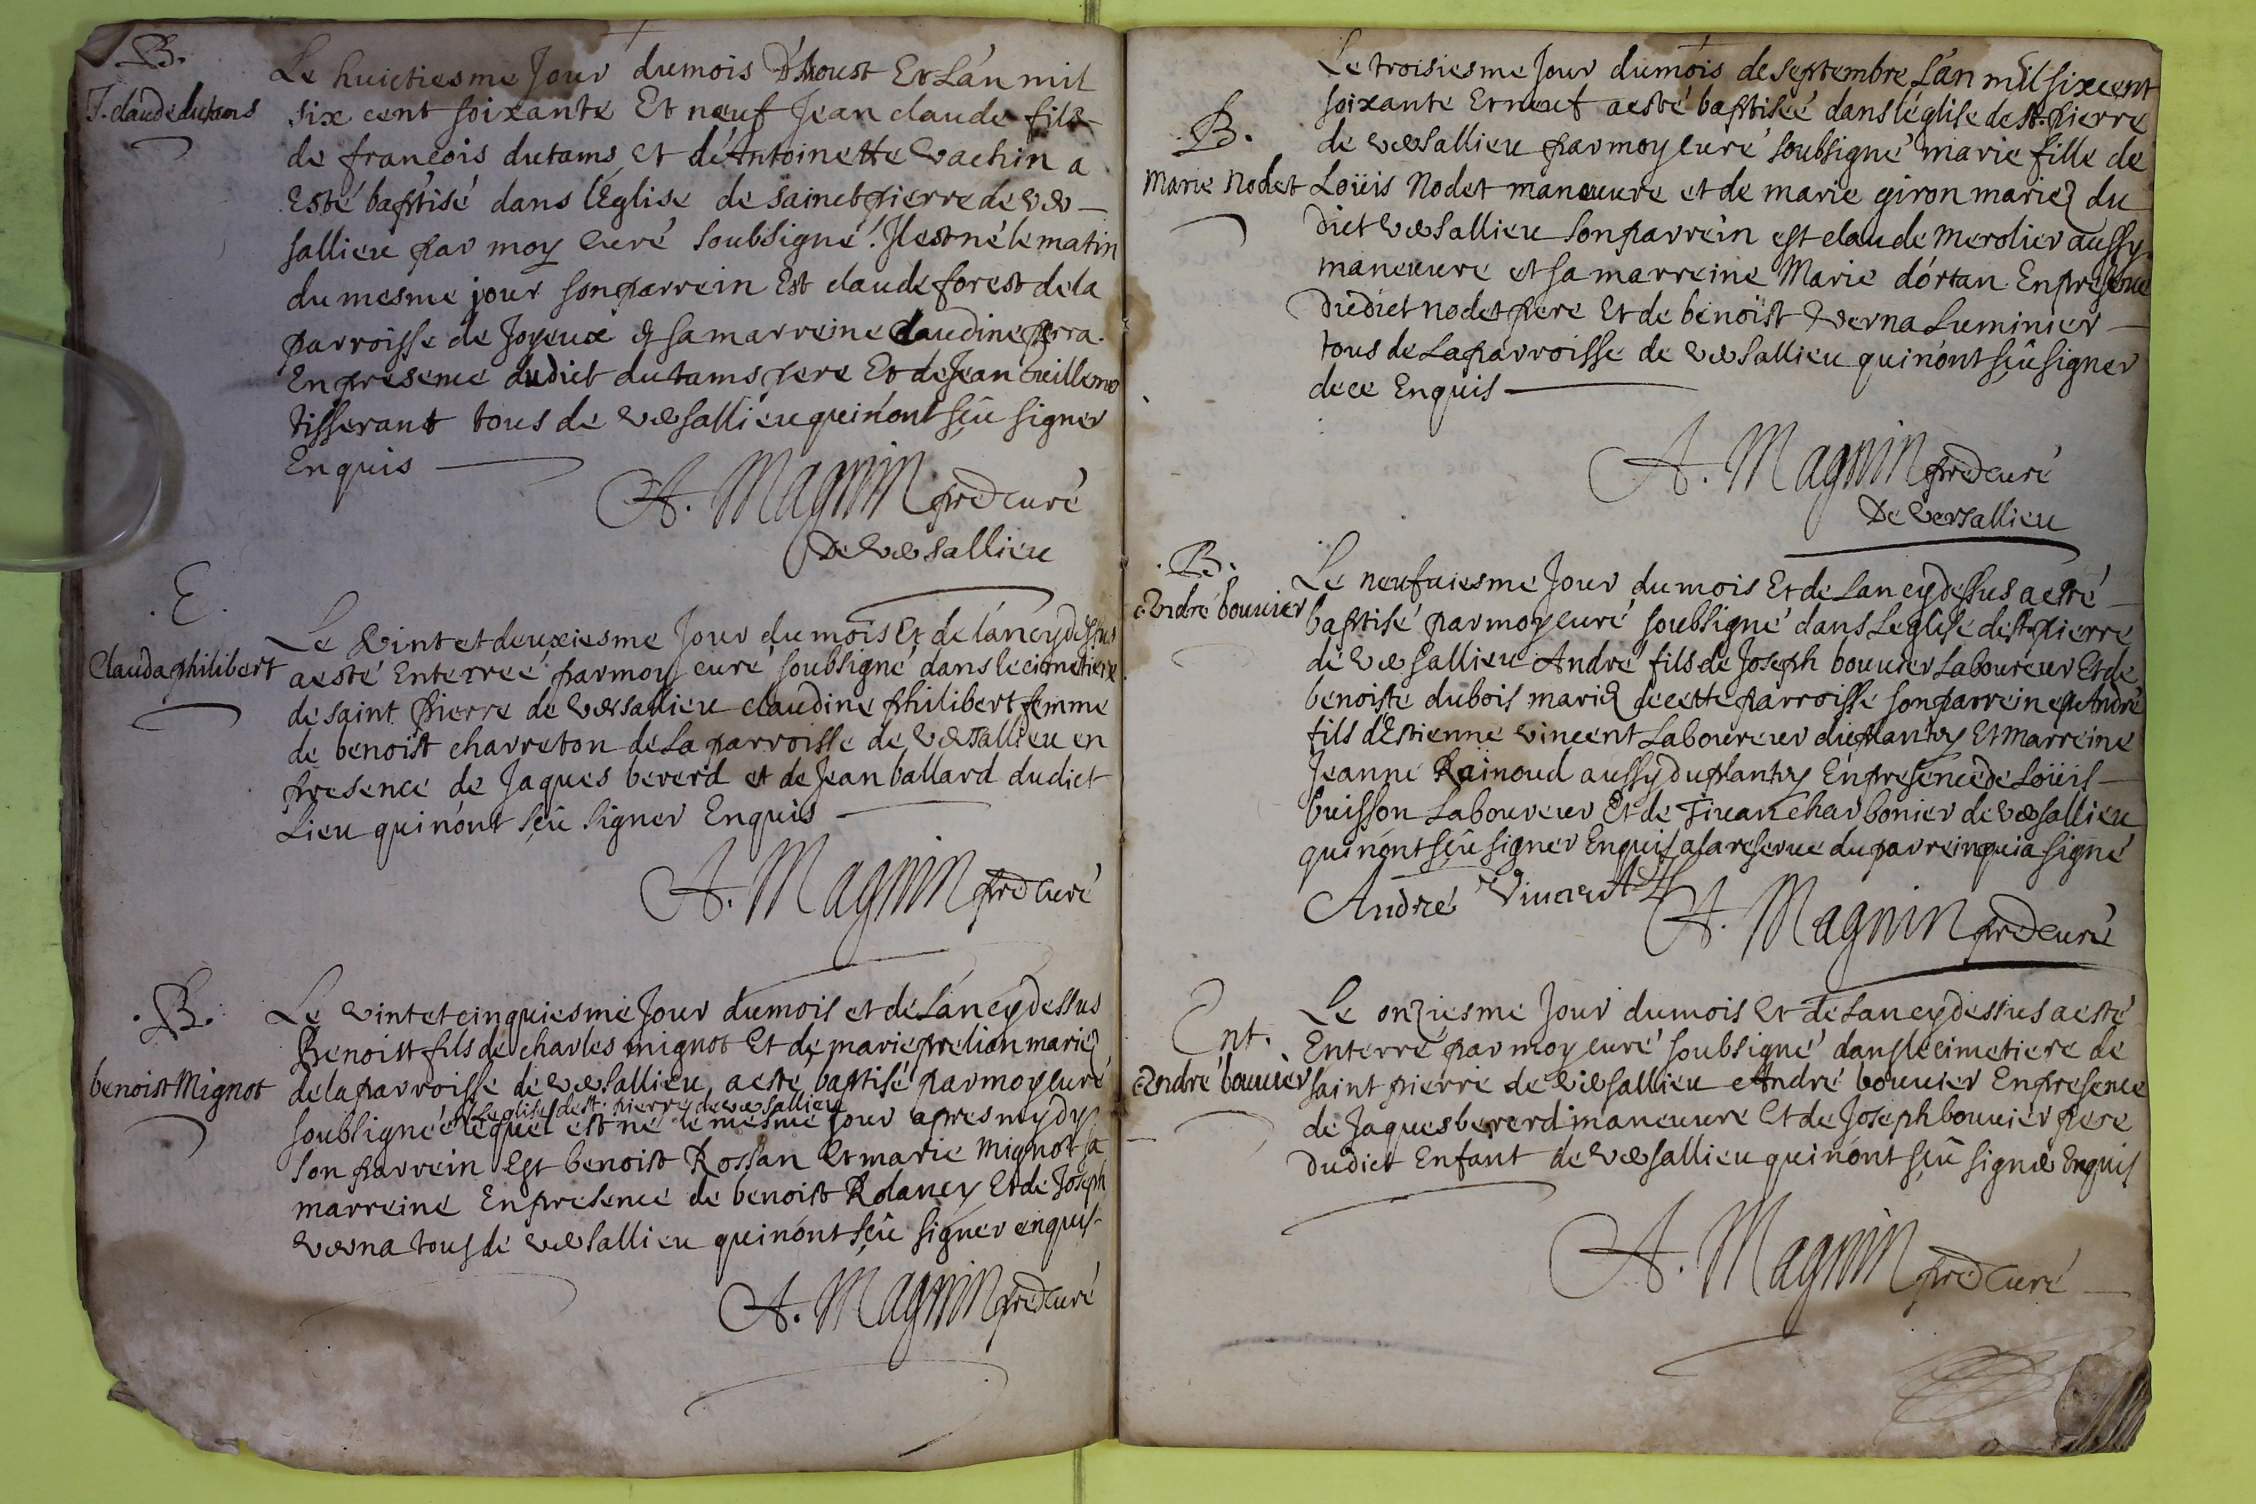 .B.
J. claude dutams
Le huictiesme Jour du mois D'Aoust Et L'an mil
six cent soixante Et neuf Jean claude fils
de françois dutams et de Antoinette Vachin a
Esté baptisé dans l'Eglise de sainct pierre de Ver-
sallieu par moy curé soubsigné. Il est né le matin
du mesme jour son parrein Est claude forest de la
parroisse de Joyeux & sa marreine claudine perra.
En presence dudict dutams pere Et de Jean
tisserant tous de Versallieu qui n'ont sçû signer
Enquis
A. Magnin pred curé
De Versallieu
.E.
Clauda philibert
Le Vint et deuxiesme Jour du mois Et de l'an cy dessus
a esté Enterreé par moy curé soubsigné dans le cimetiere
de saint pierre de Versallieu claudine philibert femme
de benoist charreton de La parroisse de Versallieu en
presence de Jaques bererd et de Jean ballard dudict
Lieu qui n'ont sçû signer Enquis
A. Magnin pred curé
.B.
benoist Mignot
Le vint et cinquiesme Jour du mois et de L'an cy dessus
Benoist fils de charles mignot Et de marie prelian mariez
de la parroisse de Versallieu, a esté baptisé par moy curé
dans L'eglise de st. pierre de Versallieu
soubsigné lequel est né le mesme Jour apres mydy
son parrein Est benoist Rossan Et marie Mignot sa
marreine En presence de benoist Rolancy Et de Joseph
Verna tous de Versallieu qui n'ont sçû signer enquis
A. Magnin pred curé
.B.
Marie Nodet
Le troisiesme Jour du mois de septembre L'an mil six cent
soixante Et neuf a esté baptiseé dans l'eglise de st. pierre
de Versallieu par moy curé soubsigné marie fille de
Loüis Nodet maneuvre et de marie giron mariez du
dict Versallieu son parrein est claude Merolier aussy
maneuvre et sa marreine Marie d'ortan. En presence
dudict nodet pere Et de benoist Verna Luminier
tous de La parroisse de Versallieu qui n'ont sçû signer
de ce Enquis
A. Magnin pred curé
De Versallieu
.B.
André bouvier
Le neufuiesme Jour du mois Et de L'an cy dessus a esté
baptisé par moy curé soubsigné dans L'eglise de st pierre
de Versallieu André fils de Joseph bouvier Laboureur Et de
benoiste dubois mariez de cette parroisse son parrein est André
fils d'Estienne vincent Laboureur du plantey Et marreine
Jeanne Rainoud aussy du plantey En presence de Loüis
buisson Laboureur Et de Tivan charbonier de Versallieu
qui n'ont sçû signer Enquis a la reserve du parrein qui a signé
André Vincent
A. Magnin pred curé
Ent.
André bouvier
Le onziesme Jour du mois Et de L'an cy dessus a esté
Enterré par moy curé soubsigné dans le cimetiere de
saint pierre de Versallieu André bouvier En presence
de Jaques bererd maneuvre Et de Joseph bouvier pere
dudict Enfant de Versallieu qui n'ont sçû signer Enquis
A. Magnin pred curé